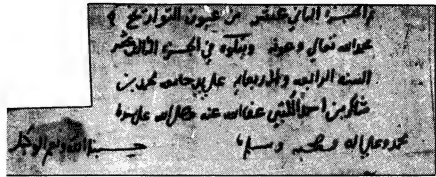 الجزء الثاني عشر من عيون التواريخ
بحمد الله تعالى وعونه ويتلوه في الجزء الثالث عشر
السنه الرابعه والاربعمايه على يد جامعه محمد بن
شاكر بن احمد الكتبي عفا الله عنه وصلى الله على سيدنا
محمد وعلى اله وصحبه وسلم حسبنا الله ونعم الوكيل